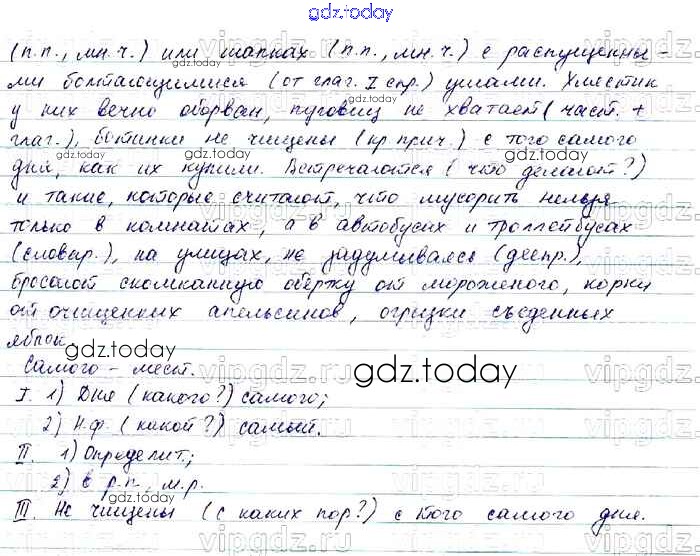 gdz.today
(п.п., мн.ч.) или шапках (п.п., мн.ч.) с распущенны-
ми болтающимися (от глаг. I спр.) ушами. Хлястик
у них вечно оборван, пуговиц не хватает (част. +
глаг.), ботинки не чищены (кр. прич.) с того самого
дня, как их купили. Встречаются (что делают?)
и такие, которые считают, что мусорить нельзя
только в комнатах, а в автобусах и троллейбусах
(словар.), на улицах, не задумываясь (деепр.),
бросают скомканную обёртку от мороженого, корки
от очищенных апельсинов, огрызки съеденных
яблок.
Самого – мест.
I. 1) Дня (какого?) самого;
2) Н.ф. (какой?) самый.
II. 1) Определит.;
2) в р.п., м.р.
III. Не чищены (с каких пор?) с того самого дня.